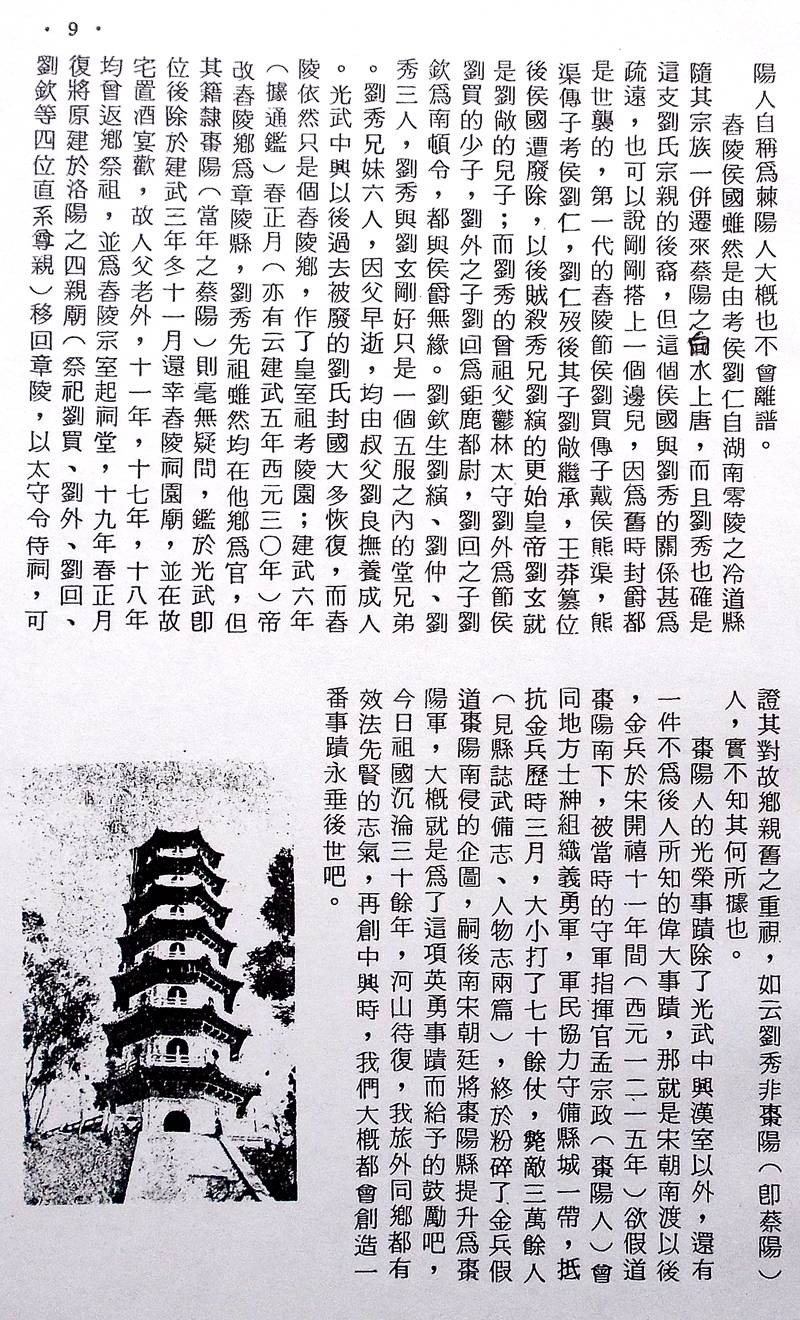 • 9 •
陽人自稱爲棘陽人大概也不會離譜。
舂陵侯國雖然是由考侯劉仁自湖南零陵之冷道縣
隨其宗族一併遷來蔡陽之白水上唐，而且劉秀也確是
這支劉氏宗親的後裔，但這個侯國與劉秀的關係甚爲
疏遠，也可以說剛剛搭上一個邊兒，因爲舊時封爵都
是世襲的，第一代的舂陵節侯劉買傳子戴侯熊渠，熊
渠傳子考侯劉仁，劉仁歿後其子劉敞繼承，王莽篡位
後侯國遭廢除，以後賊殺秀兄劉縯的更始皇帝劉玄就
是劉敞的兒子；而劉秀的曾祖父鬱林太守劉外爲節侯
劉買的少子，劉外之子劉回爲鉅鹿都尉，劉回之子劉
欽爲南頓令，都與侯爵無緣。劉欽生劉縯、劉仲、劉
秀三人，劉秀與劉玄剛好只是一個五服之內的堂兄弟
。劉秀兄妹六人，因父早逝，均由叔父劉良撫養成人
。光武中興以後過去被廢的劉氏封國大多恢復，而舂
陵依然只是個舂陵鄉，作了皇室祖考陵園；建武六年
（據通鑑）春正月（亦有云建武五年西元三〇年）帝
改舂陵鄉爲章陵縣，劉秀先祖雖然均在他鄉爲官，但
其籍隸棗陽（當年之蔡陽）則毫無疑問，鑑於光武卽
位後除於建武三年冬十一月還幸舂陵祠園廟，並在故
宅置酒宴歡，故人父老外，十一年，十七年，十八年
均曾返鄉祭祖，並爲舂陵宗室起祠堂，十九年春正月
復將原建於洛陽之四親廟（祭祀劉買、劉外、劉回、
劉欽等四位直系尊親）移回章陵，以太守令侍祠，可
證其對故鄉親舊之重視，如云劉秀非棗陽（卽蔡陽）
人，實不知其何所據也。
棗陽人的光榮事蹟除了光武中興漢室以外，還有
一件不爲後人所知的偉大事蹟，那就是宋朝南渡以後
，金兵於宋開禧十一年間（西元一二一五年）欲假道
棗陽南下，被當時的守軍指揮官孟宗政（棗陽人）曾
同地方士紳組織義勇軍，軍民協力守備縣城一帶，抵
抗金兵歷時三月，大小打了七十餘仗，斃敵三萬餘人
（見縣誌武備志、人物志兩篇），終於粉碎了金兵假
道棗陽南侵的企圖，嗣後南宋朝廷將棗陽縣提升爲棗
陽軍，大概就是爲了這項英勇事蹟而給予的鼓勵吧，
今日祖國沉淪三十餘年，河山待復，我旅外同鄉都有
效法先賢的志氣，再創中興時，我們大概都會創造一
番事蹟永垂後世吧。